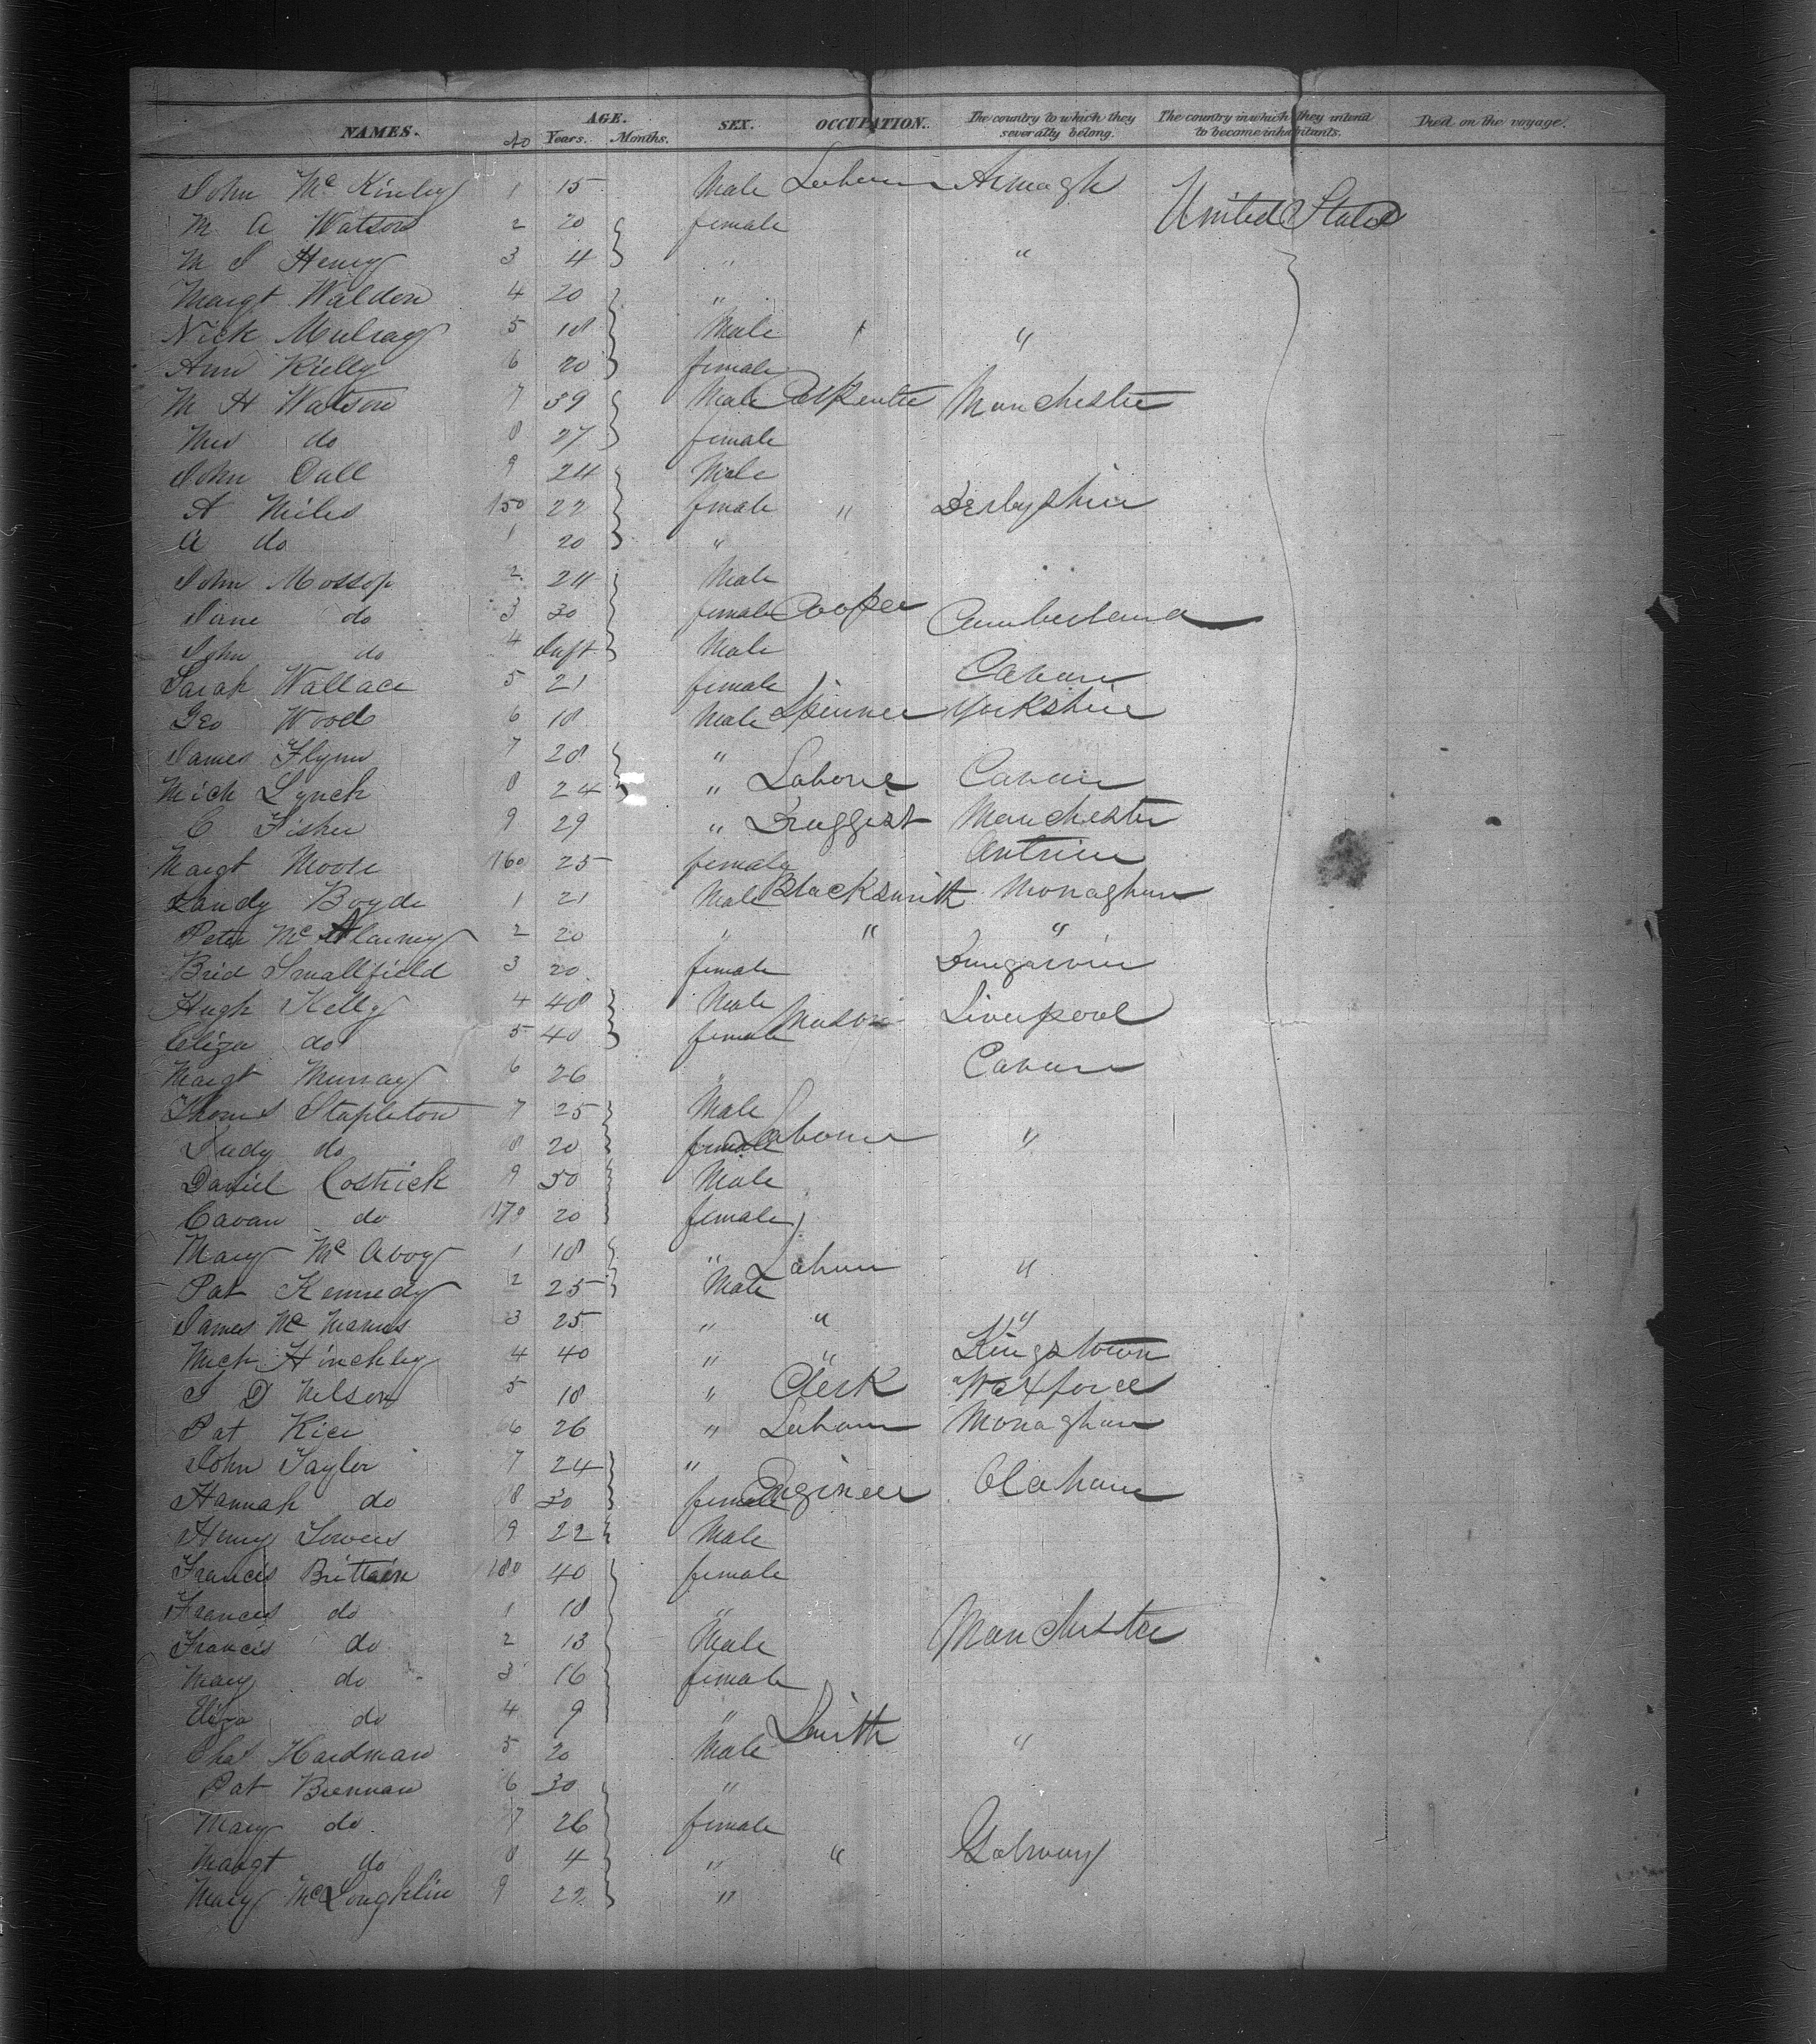 NAMES. No AGE. Years. Months. SEX. OCCUPATION. The country to which they severally belong. The country in which they intend to become inhabitants. Died on the voyage.
John Mc Kinley 1 15 Male Labourer Armagh
M A Watson 2 20 female United States
M J Henry 3 4 " "
Margt Waldon 4 20 "
Nick Mulray 5 18 Male " "
Ann Kielly 6 20 female
M H Watson 7 39 Male Carpenter Manchester
Mrs do 8 27 female
John Dall 9 24 Male
A Miles 150 22 female " Derbyshire
A do 1 20 "
John Mossop 2 24 Male
Jane do 3 30 female Cooper Cumberland
John do 4 Inft Male
Sarah Wallace 5 21 female Cavan
Geo Wood 6 18 Male Spinner Yorkshire
James Flynn 7 28 "
Mich Lynch 8 24 " Laborer Cavan
C Fisher 9 29 " Druggist Manchester
Margt Moore 160 25 female Antrim
Sandy Boyde 1 21 Male Blacksmith Monaghan
Peter Mc 2 20 " " "
Brid Smallfield 3 20 female Dungarvin
Hugh Kelly 4 48 Male Mason Liverpool
Eliza do 5 40 female
Margt Murray 6 26 " Cavan
Thomas Stapleton 7 25 Male
Judy do 8 20 female Labourer "
Daniel Costrick 9 30 Male
Cavan do 170 20 female
Mary Mc Avoy 1 18 " Labour "
Pat Kennedy 2 25 Male
James Mc Manus 3 25 " " "
Mich Hinchley 4 40 " " Kingstown
J D Nelson 5 18 " Clerk Wexford
Pat Rice 6 26 " Labour Monaghan
John Taylor 7 24 "
Hannah do 8 30 female Engineer Oldham
Henry Sowers 9 22 Male
Frances Brittain 180 40 female
Frances do 1 18 "
Francis do 2 13 Male Manchester
Mary do 3 16 female
Eliza do 4 9 "
Chas Hardman 5 20 Male Smith "
Pat Brennan 6 30 "
Mary do 7 26 female
Margt do 8 4 " " Galway
Mary McLoughlin 9 22 "